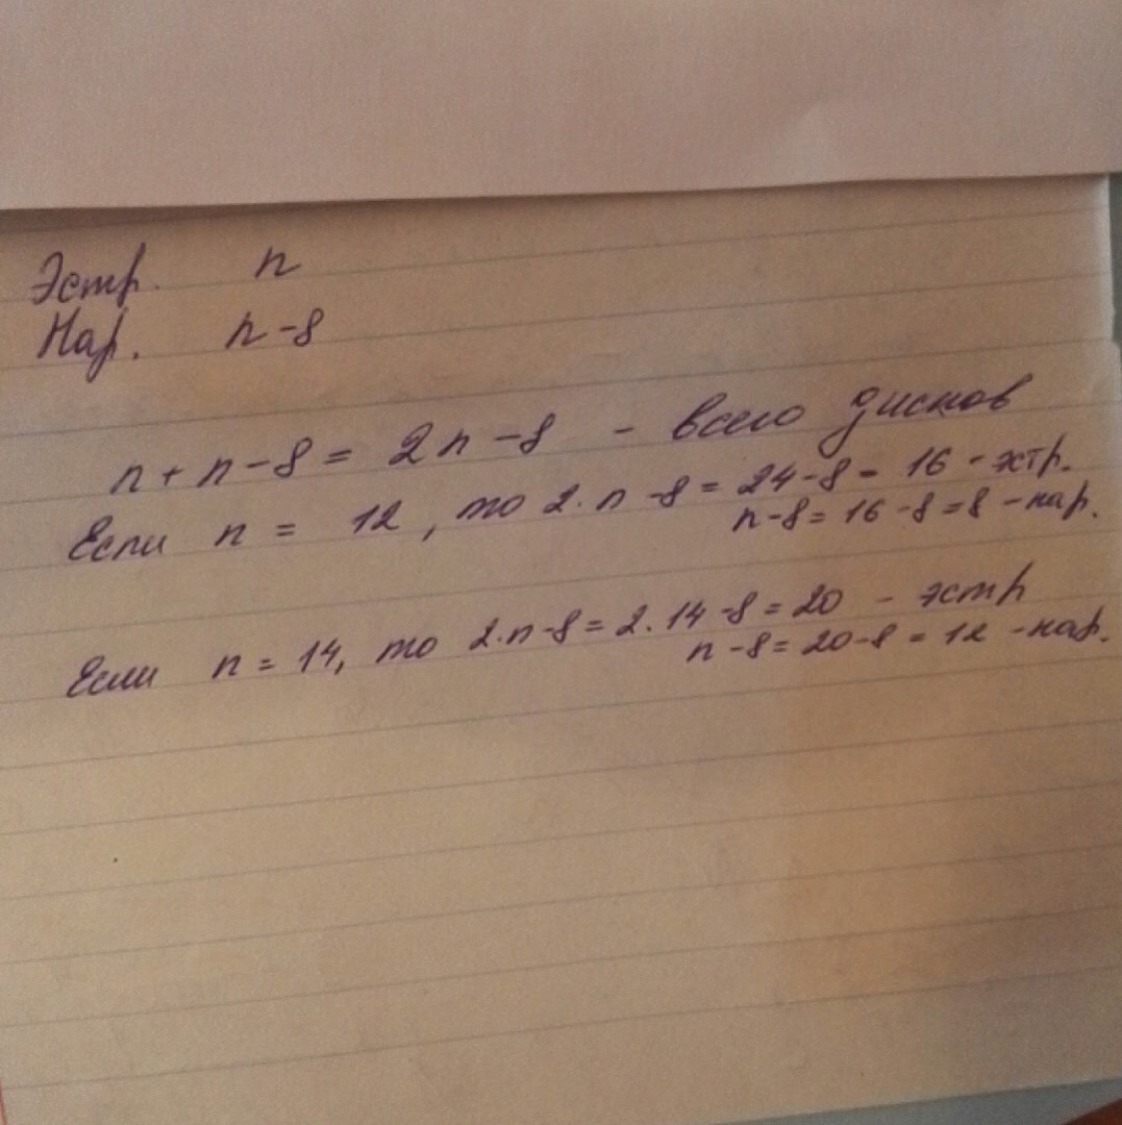 Эстр. n
Нар. n-8
n + n - 8 = 2n - 8 - всего дисков
Если n = 12, то 2·n-8 = 24-8 = 16 - эстр.
n-8 = 16-8 = 8 - нар.
Если n = 14, то 2·n-8 = 2·14-8 = 20 - эстр
n-8 = 20-8 = 12 - нар.